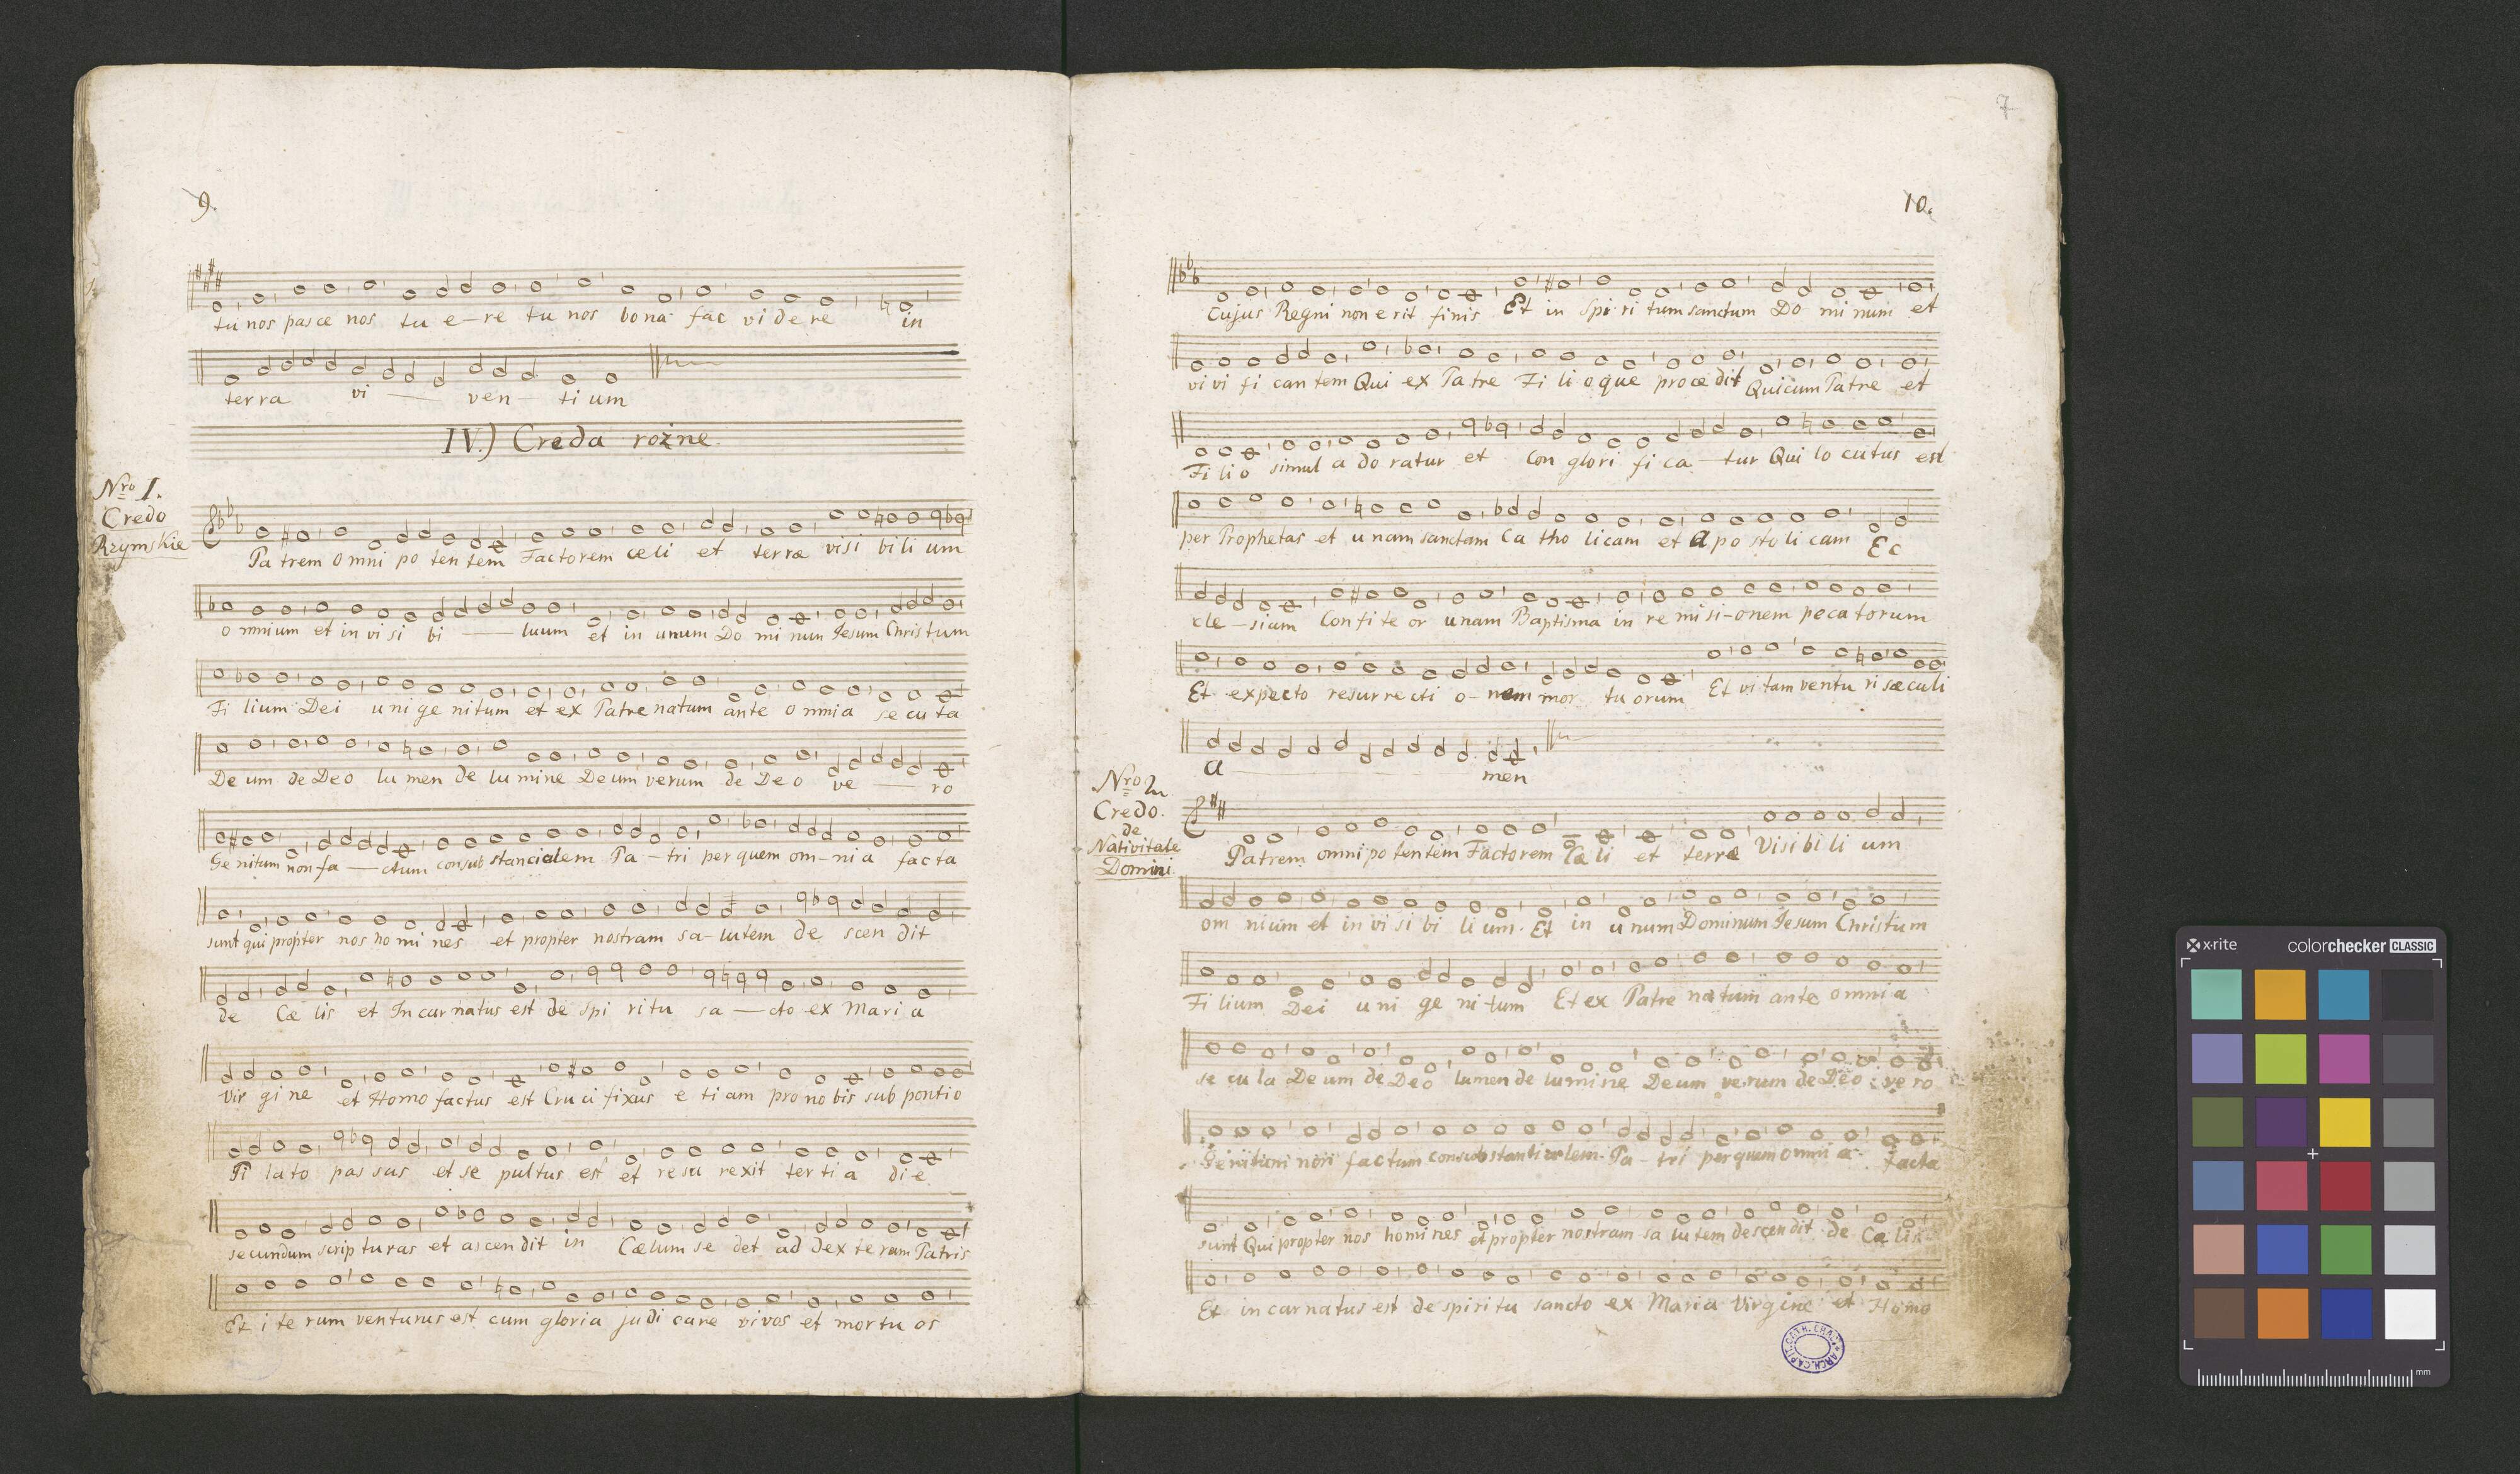 9.
tu nos pasce nos tu e-re tu nos bona fac vi de re in
terra vi — ven- ti um
IV.) Creda rożne
Nro I.
Credo
Rzymskie
Pa trem o mni po ten tem Factorem cæli et terræ visi bi li um
o mnium et in vi si bi — luum et in unum Do mi nun Jesum Christum
Fi lium Dei u ni ge nitum et ex Patre natum ante o mnia se cu ta
De um de Deo lu men de lu mine Deum verum de De o ve — ro
Ge nitum non fa — ctum consub stancialem Pa-tri per quem om-ni a facta
sunt qui propter nos ho mi nes et propter nostram sa-lutem de scen dit
de Cæ lis et Incarnatus est de Spi ritu sa — cto ex Mari a
Vir gi ne et Homo factus est Cru ci fixus e ti am pro no bis sub pontio
Pi la to pas sus et se pultus est et re su rexit ter ti a di e
secundum scrip tu ras et ascen dit in Cælum se det ad dex te ram Patris
Et i te rum venturus est cum gloria ju di care vi vos et mortu os
7
10.
Cujus Regni non e rit finis Et in Spi ri tum sanctum Do mi num et
vi vi fi can tem Qui ex Patre Fi li o que procæ dit Qui cum Patre et
Fi li o simul a do ratur et Con glori fi ca — tur Qui lo cutus est
per Prophetas et u nam sanctam Ca tho licam et A po sto li cam Ec
cle — siam Confi te or unam Baptisma in re mi si-onem peca torum
Et expecto resurrecti o-nem mor tu orum Et vi tam ventu ri sæculi
A — men
Nro 2.
Credo.
de
Nativitate
Domini
Patrem omni po tentem Factorem Cæ li et terræ Visi bi li um
om nium et in vi si bi li um. Et in u num Dominum Jesum Christum
Fi lium Dei u ni ge ni tum Et ex Patre na tum ante omni a
se cu la De um de Deo lumen de lumi ne Deum verum de Deo ve ro
Genitum non factum consubstanti alem. Pa-tri per quem omni a facta
sunt Qui propter nos homi nes et propter nostram sa lu tem descendit de Cæ lis
Et in carnatus est de spiritu sancto ex Maria Virgine et Homo
x-rite
colorchecker CLASSIC
mm